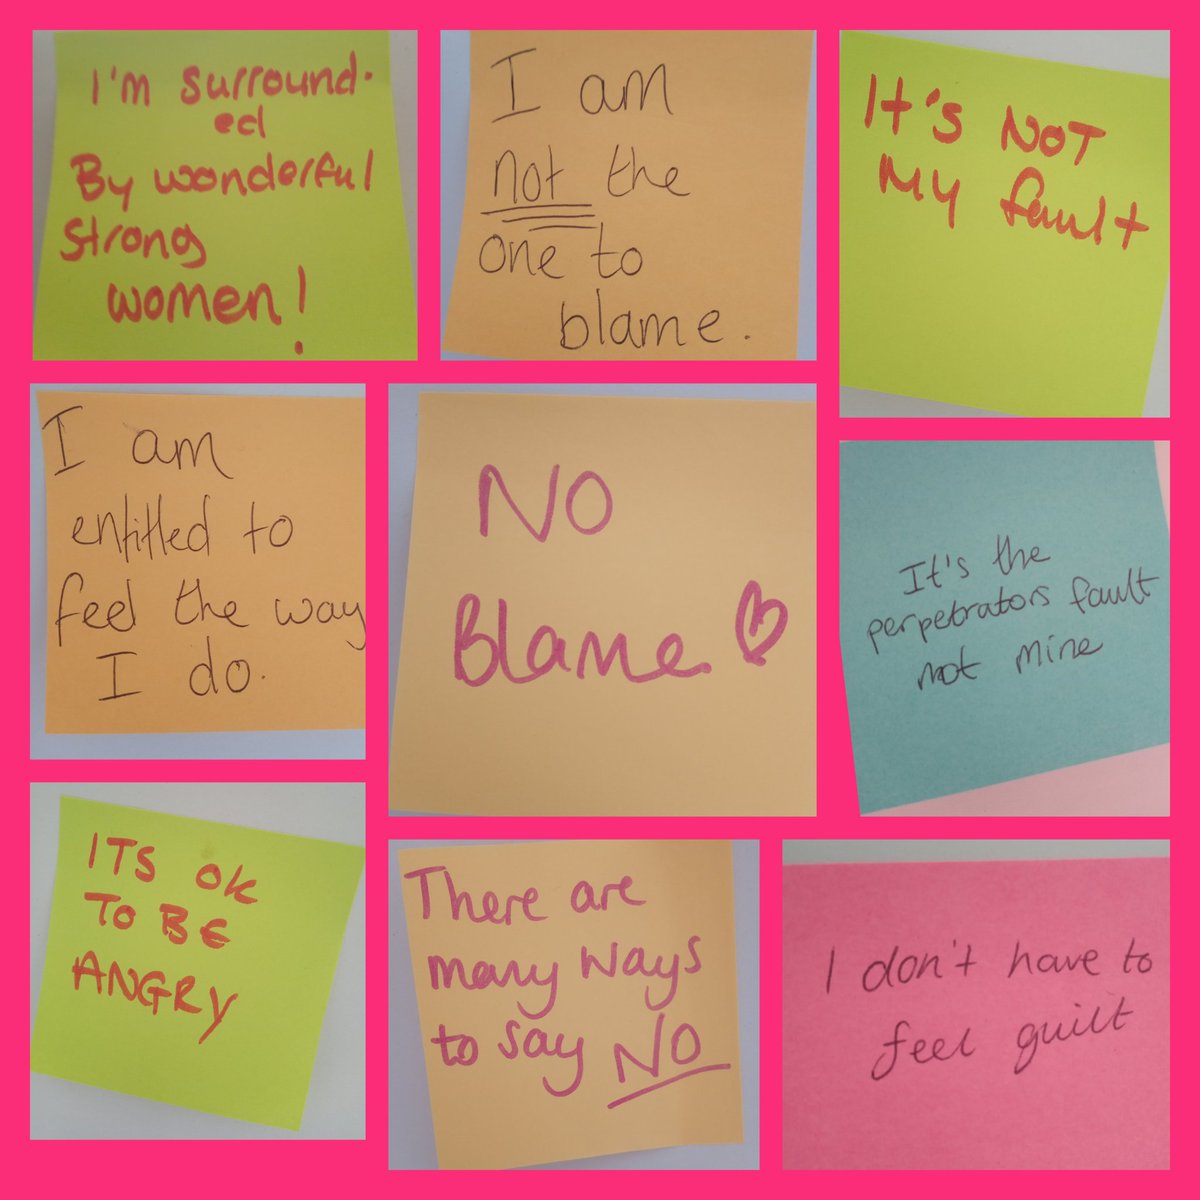 I'm surround-
ed
By wonderful
strong
women!
I am
not the
one to
blame.
It's NOT
My fault
I am
entitled to
feel the way
I do.
NO
Blame
It's the
perpetrators fault
not mine
ITS OK
TO BE
ANGRY
There are
many ways
to say NO
I don't have to
feel guilt